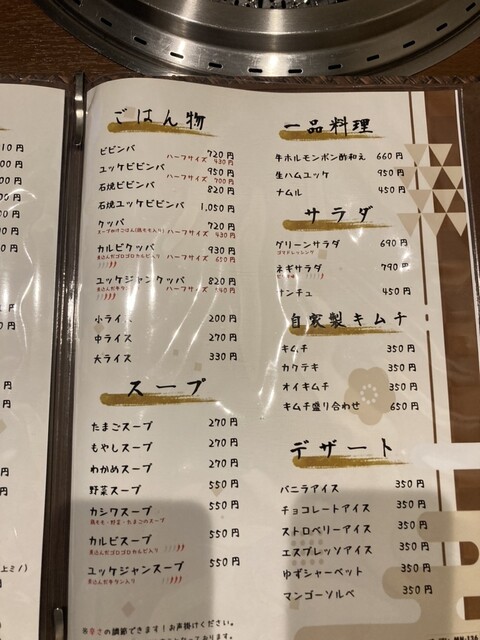 ごはん物
ビビンバ 720円
ハーフサイズ 430円
ユッケビビンバ 950円
ハーフサイズ 700円
石焼ビビンバ 820円
石焼ユッケビビンバ 1,050円
クッパ 720円
ハーフサイズ 430円
カルビクッパ 930円
煮込んだゴロゴロカルビ入り ハーフサイズ 650円
ユッケジャンクッパ 820円
ハーフサイズ
小ライス 200円
中ライス 270円
大ライス 330円
スープ
たまごスープ 270円
もやしスープ 270円
わかめスープ 270円
野菜スープ 550円
カシワスープ 550円
鶏もも・野菜・たまごのスープ
カルビスープ 550円
煮込んだゴロゴロカルビ入り
ユッケジャンスープ 550円
煮込んだ牛タン入り
※辛さの調節できます!お声掛けください。
一品料理
牛ホルモンポン酢和え 660円
生ハムユッケ 950円
ナムル 450円
サラダ
グリーンサラダ 690円
ゴマドレッシング
ネギサラダ 790円
サンチュ 450円
自家製キムチ
キムチ 350円
カクテキ 350円
オイキムチ 350円
キムチ盛り合わせ 650円
デザート
バニラアイス 350円
チョコレートアイス 350円
ストロベリーアイス 350円
エスプレッソアイス 350円
ゆずシャーベット 350円
マンゴーソルベ 350円